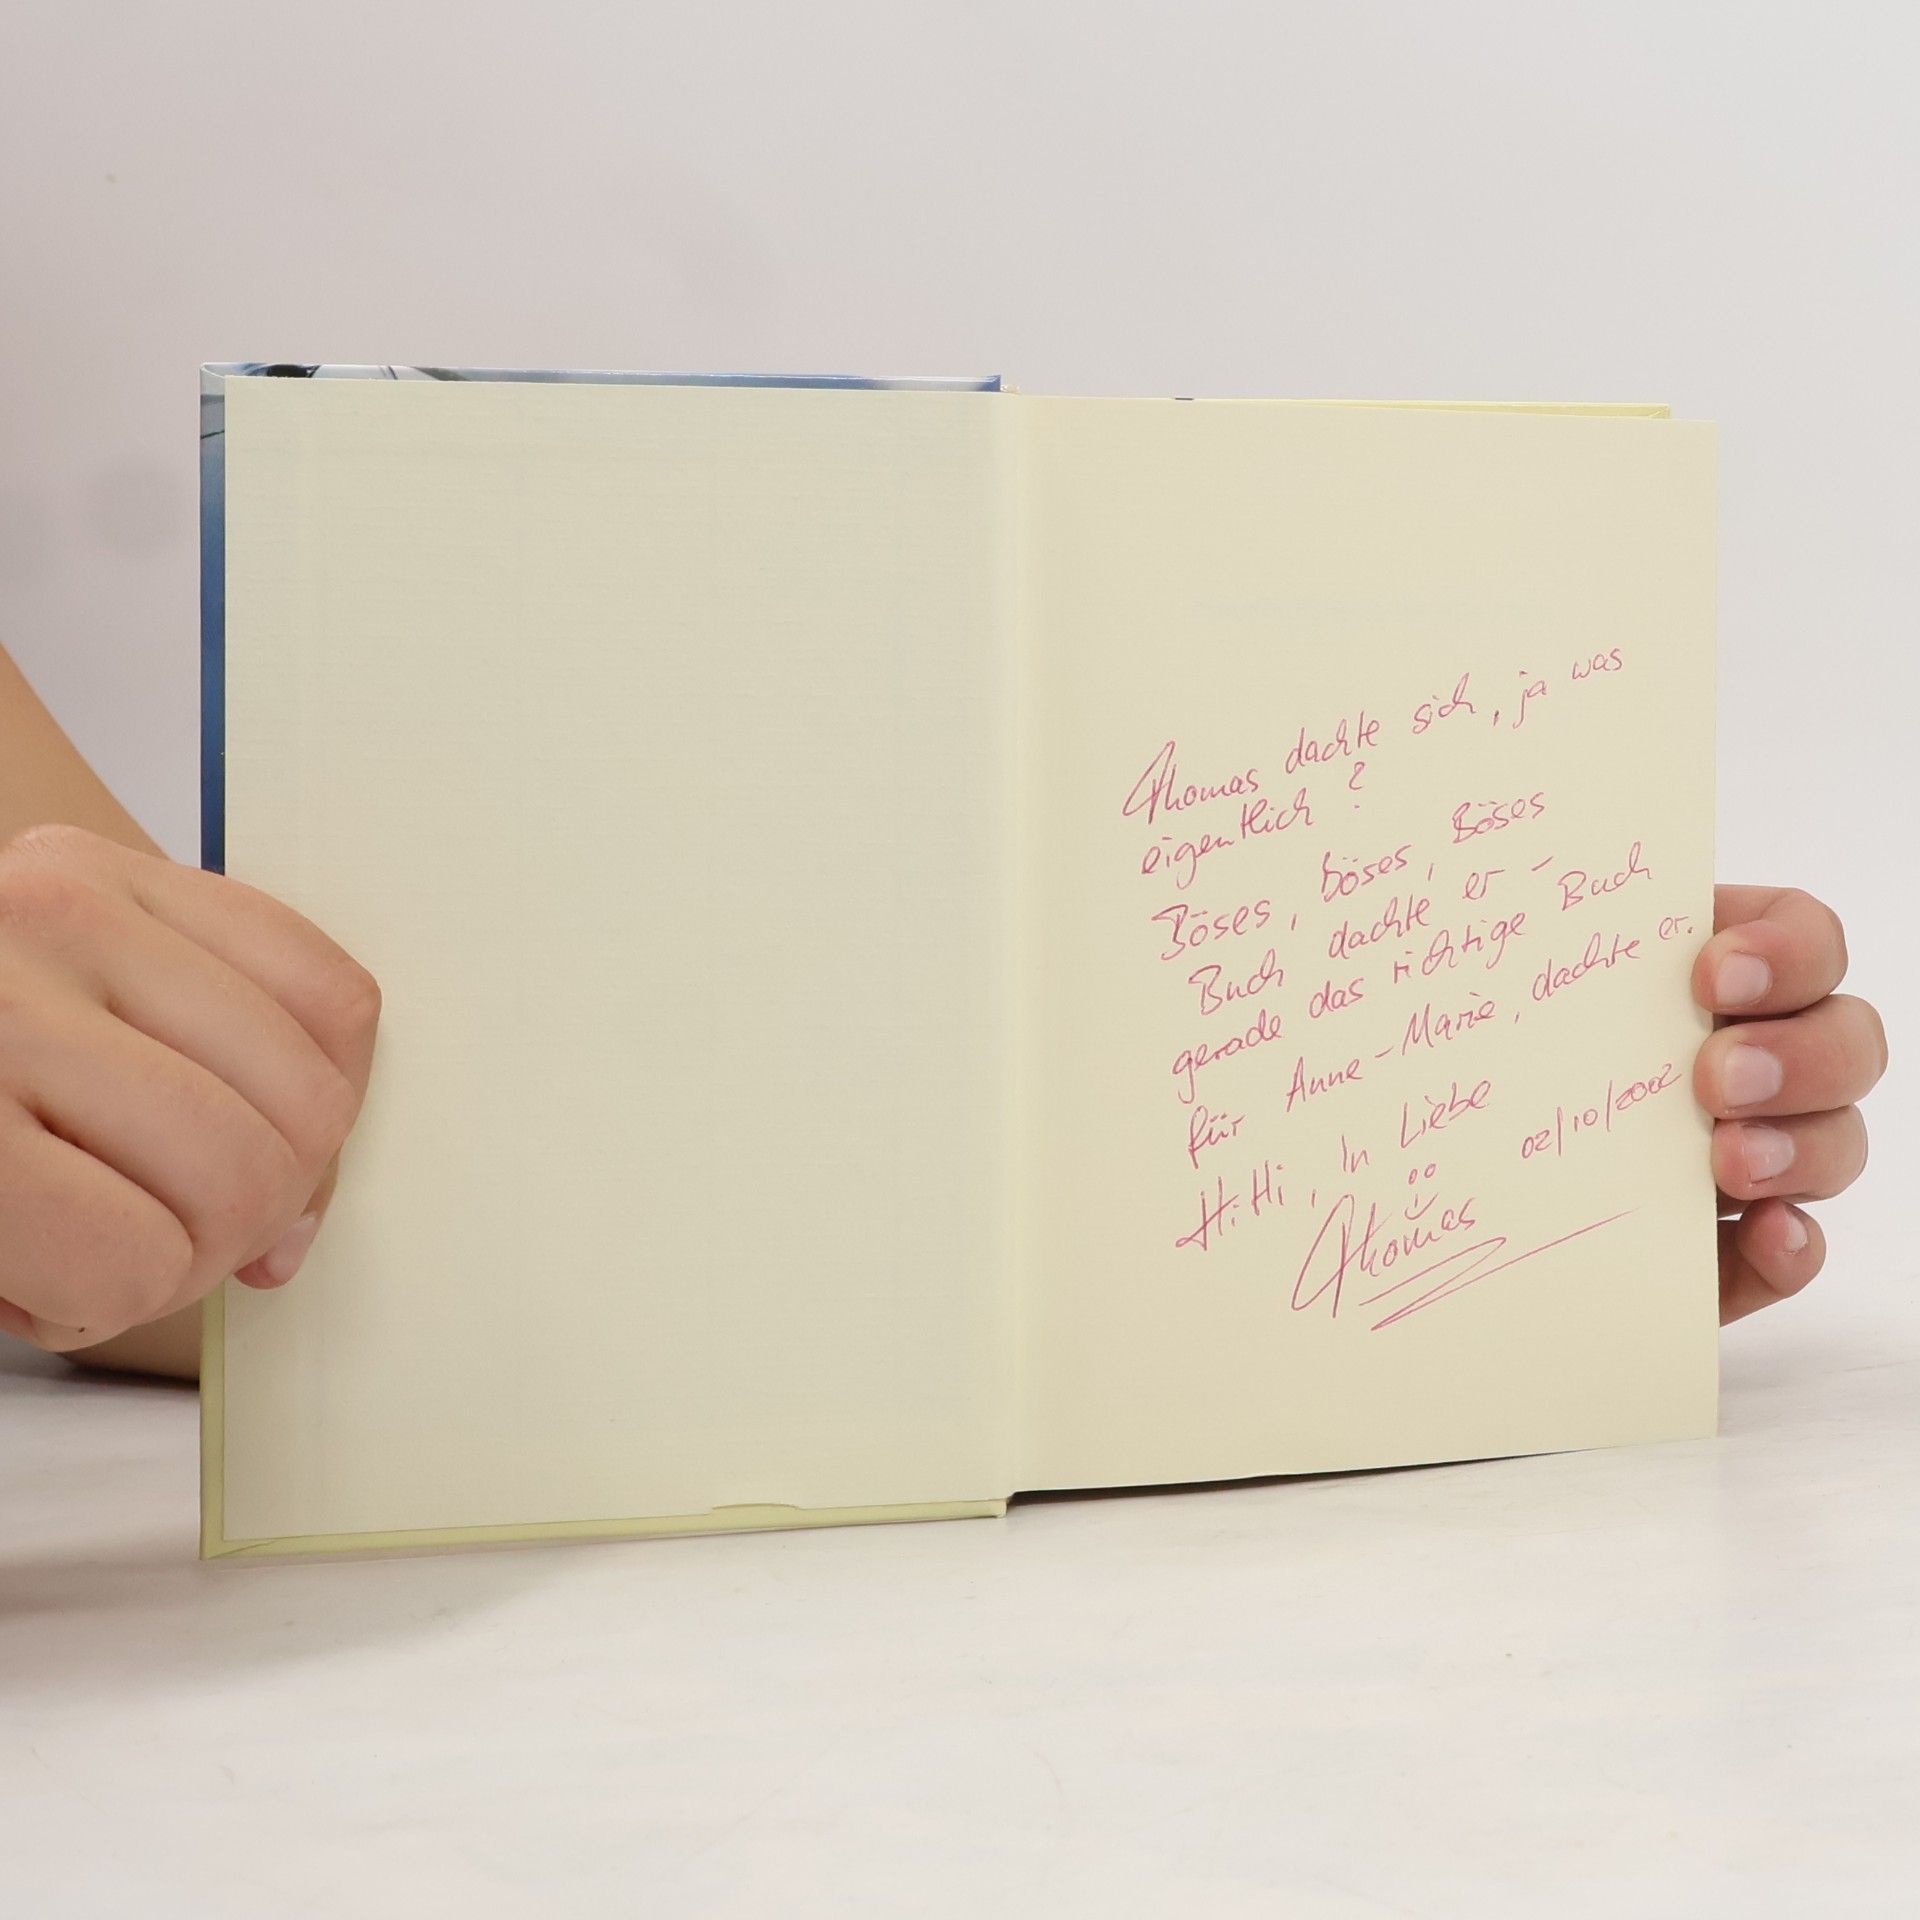 Thomas dachte sich, ja was
eigentlich?
Böses, Böses, Böses
Buch dachte er -
gerade das richtige Buch
für Anne-Marie, dachte er.
HiHi, In Liebe
02/10/2002
Thomas